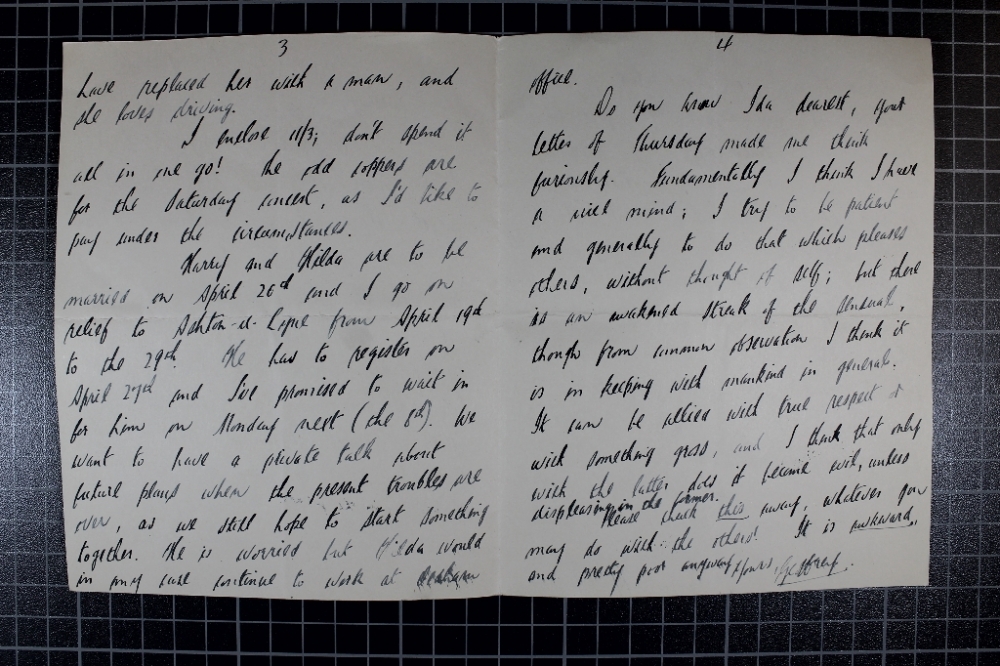 3
have replaced her with a man, and
she loves driving.
I enclose 11/3; don't spend it
all in one go! The odd coppers are
for the Saturday concert, as I'd like to
pay under the circumstances.
Harry and Hilda are to be
married on April 20th and I go on
relief to Ashton-u-Lyne from April 19th
to the 29th. He has to register on
April 27th and I've promised to wait in
for him on Monday next (the 8th). We
want to have a private talk about
future plans when the present troubles are
over, as we still hope to start something
together. He is worried but Hilda would
in any case continue to work at
4
office.
Do you know Ida dearest, your
letter of Thursday made me think
furiously. Fundamentally I think I have
a nice mind; I try to be patient
and generally to do that which pleases
others, without thought of self; but there
is an awakened streak of the sensual,
though from common observation I think it
is in keeping with mankind in general.
It can be allied with true respect or
with something gross, and I think that only
with the latter does it become evil, unless
displeasing in the former.
Please chuck this away, whatever you
may do with the others! It is awkward,
and pretty poor anyway. Yours, Geoffrey.